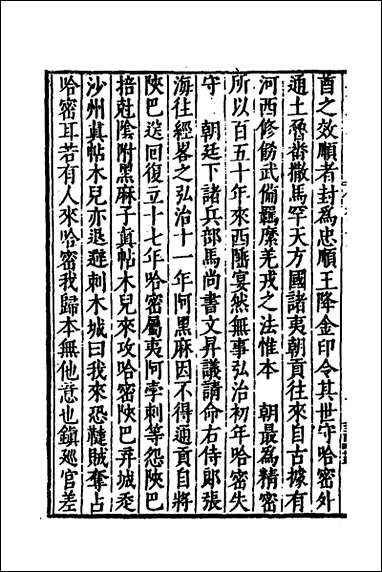 酋之效順者封為忠順王降金印令其世守哈密外
通土魯番撒馬罕天方國諸夷朝貢往來自古據有
河西修飭武備羈縻羌戎之法惟本　朝最為精密
所以百五十年來西陲宴然無事弘治初年哈密失
守　朝廷下諸兵部馬尚書文昇議請命右侍郎張
海往經畧之弘治十一年阿黑麻因不得通貢自將
陝巴送回復立十七年哈密屬夷阿孛剌等怨陝巴
掊尅陰附黑麻子真帖木兒來攻哈密陝巴弃城走
沙州真帖木兒亦退避剌木城曰我來恐韃賊奪占
哈密耳若有人來哈密我歸本無他意也鎮廵官差